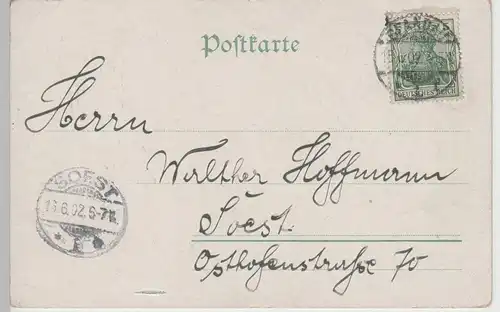 Postkarte
DEUTSCHES REICH
Herrn
Walther Hoffmann
Soest.
Osthofenstraße 70
SOEST
13.6.02. 6-7N.